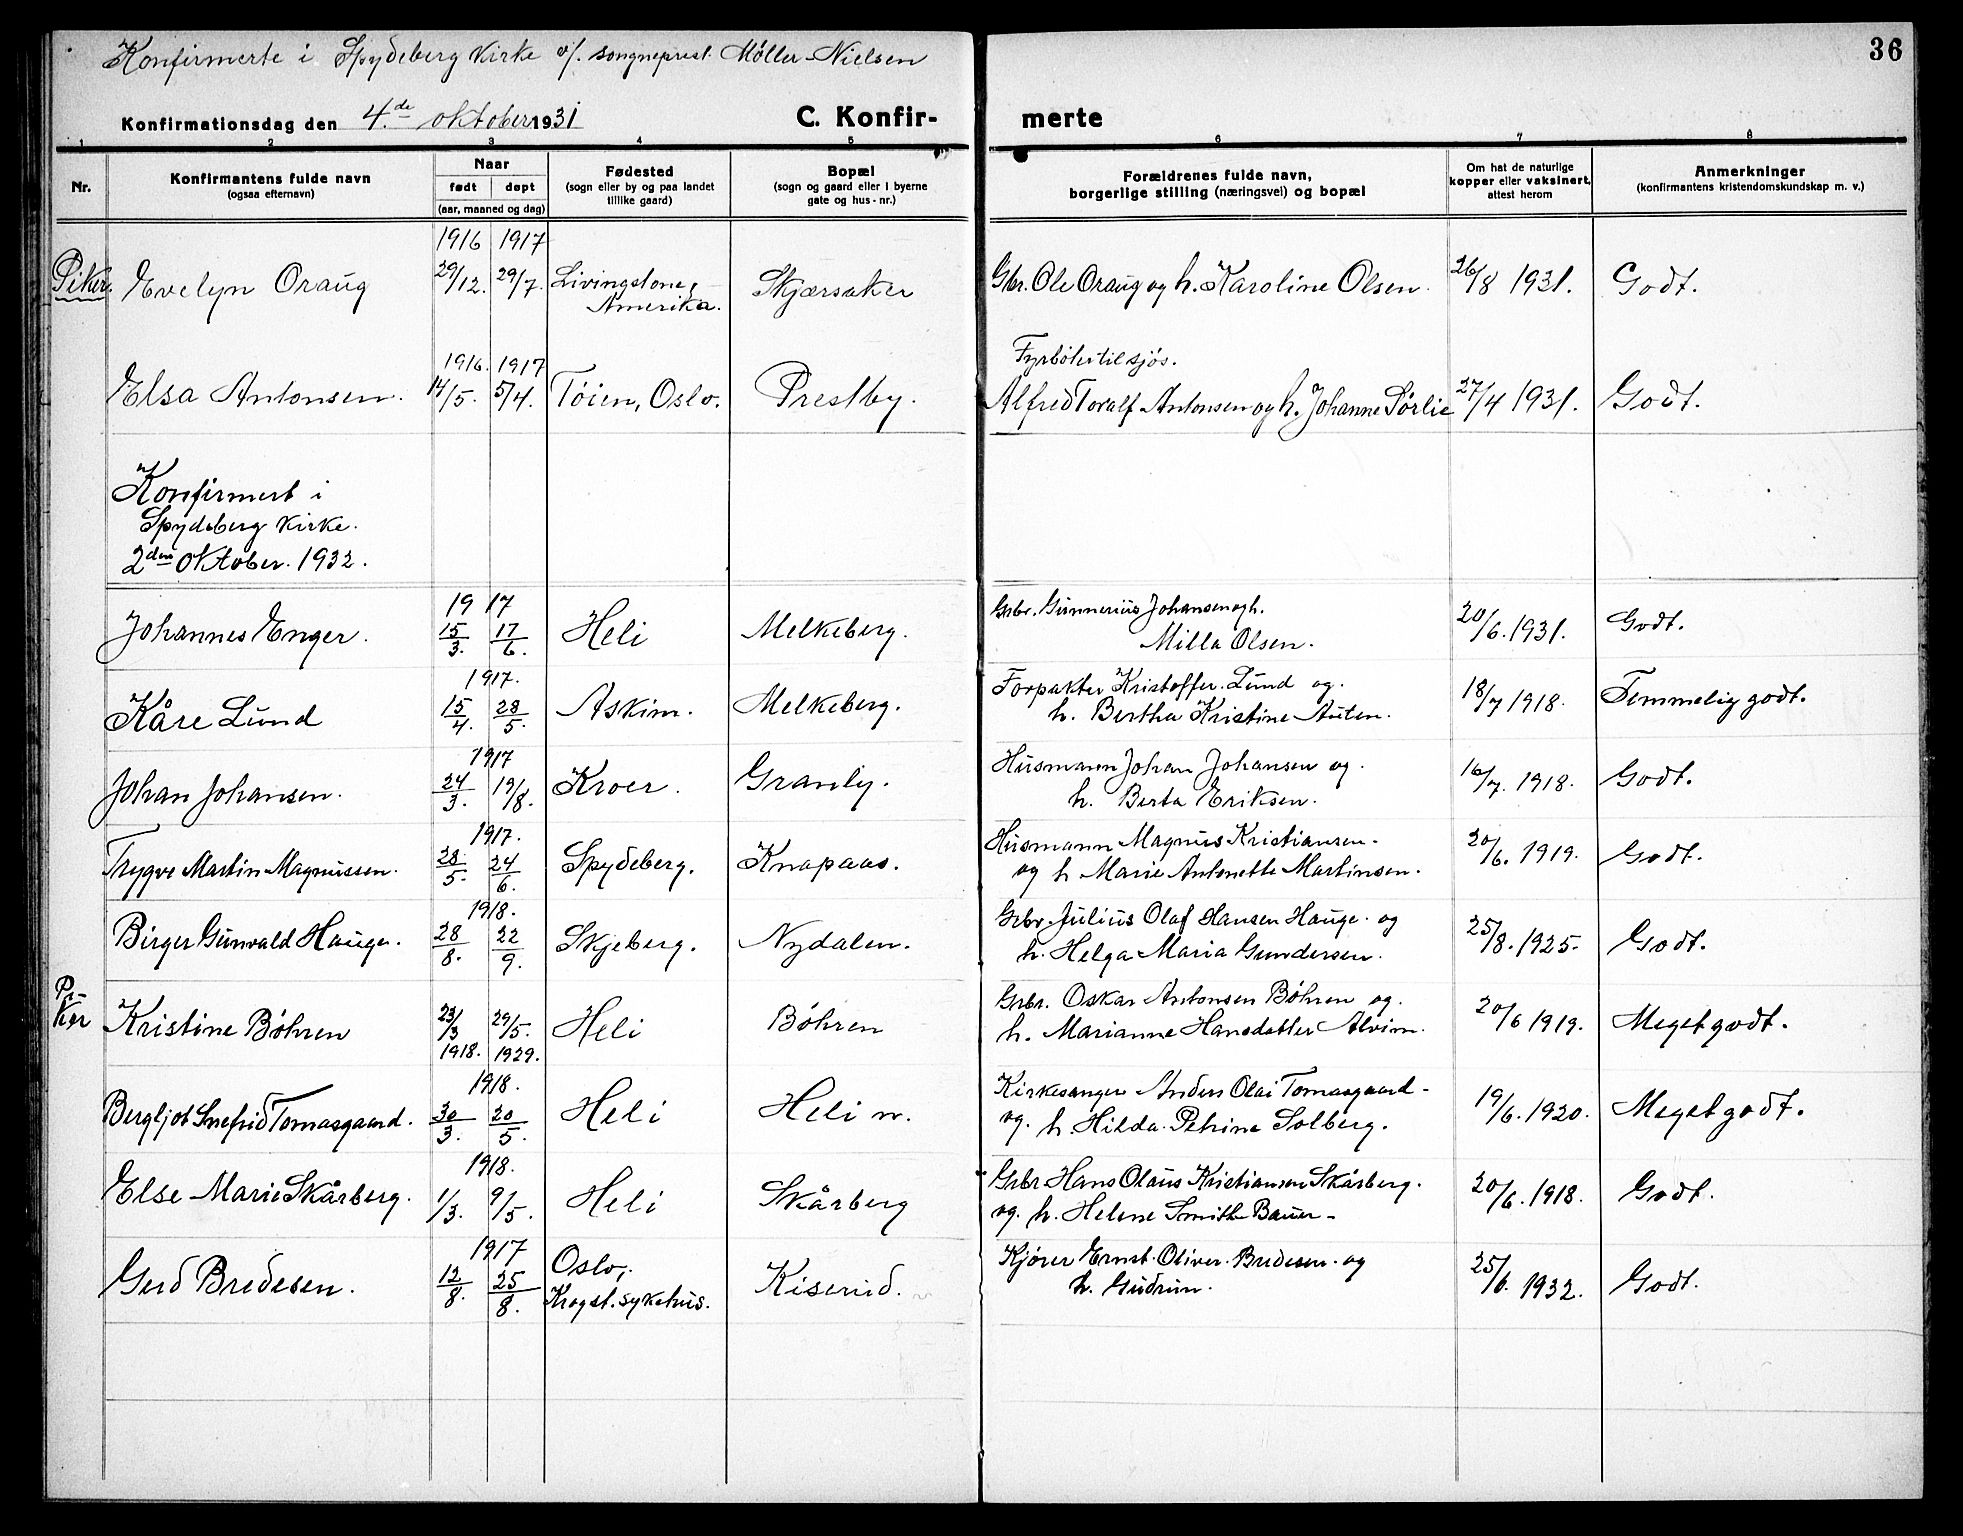 36
Konfirmerte i Spydeberg kirke v/. sogneprest Møller-Nielsen
Konfirmationsdag den 4.de oktober 1931 C. Konfir- merte
1 2 3 4 5 6 7 8
Nr. Konfirmantens fulde navn (ogsaa efternavn) Naar født døpt (aar, maaned og dag) Fødested (sogn eller by og paa landet tillike gaard) Bopæl (sogn og gaard eller i byerne gate og hus-nr.) Forældrenes fulde navn, borgerlige stilling (næringsvei) og bopæl Om hat de naturlige kopper eller vaksinert, attest herom Anmerkninger (konfirmantens kristendomskundskap m. v.)
1916 1917
Piker. Evelyn Oraug 29/12. 29/7. Livingstone, Amerika. Skjærsaker Gbr. Ole Oraug og h. Karoline Olsen. 26/8 1931. Godt.
1916. 1917 Fyrbøter til sjøs.
Elsa Antonsen. 14/5. 5/4. Tøien, Oslo. Prestby. Alfred Toralf Antonsen og h. Johanne Sørlie 27/4 1931. Godt.
Konfirmert i
Spydeberg kirke.
2den oktober. 1932.
19 17 Grbr. Gunnerius Johansen og h.
Johannes Enger. 15/3. 17/6. Heli Melkeberg. Milla Olsen. 20/6. 1931. Godt.
1917. Forpakter Kristoffer Lund og.
Kåre Lund 15/4. 28/5. Askim. Melkeberg. h. Bertha Kristine Auten. 18/7 1918. Temmelig godt.
1917 Husmann Johan Johansen og.
Johan Johansen. 24/3. 19/8. Kroer. Granly. h. Berta Eriksen. 16/7. 1918. Godt.
1917. Husmann Magnus Kristiansen.
Trygve Martin Magnussen. 28/5. 24/6. Spydeberg. Knapaas. og h Marie Antonette Martinsen. 20/6. 1919. Godt.
1918. Grbr Julius Olaf Hansen Hauge. og
Birger Gunvald Hauge. 28/8. 22/9. Skjeberg. Nydalen. h. Helga Maria Gundersen. 25/8. 1925. Godt.
Pi- Grbr. Oskar Antonsen Bøhren og.
ker Kristine Bøhren 23/3 29/5. Heli Bøhren h. Marianne Hansdatter Alvim. 20/6 1919. Meget godt.
1918. 1929.
1918. Kirkesanger Anders Olai Tomasgaard-
Bergljot Snefrid Tomasgaard. 30/3. 20/5. Heli Heli n. og. h. Hilda Petrine Solberg. 19/6. 1920. Meget godt.
1918. Grbr Hans Olaus Kristiansen Skårberg.
Else Marie Skårberg. 1/3. 9/5. Heli Skårberg og. h. Helene Smith Bauer- 20/6. 1918. Godt.
1917 Oslo, Kjører Ernst Oliver Bredesen. og
Gerd Bredesen. 12/8. 25/8. Krogst. sykehus. Kiserud. h. Gudrun. 25/6. 1932. Godt.